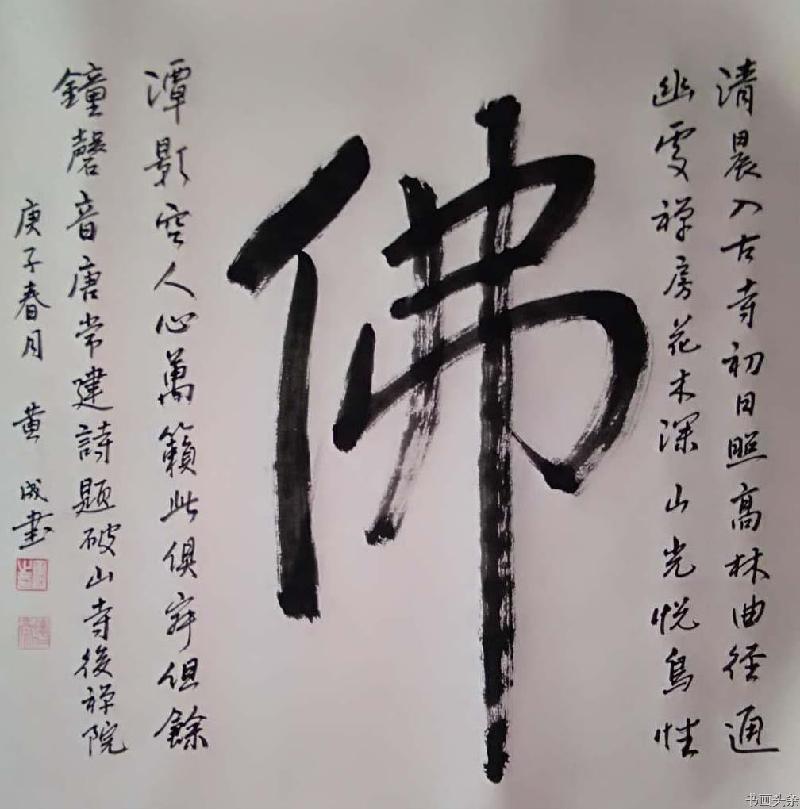 清晨入古寺初日照高林曲径通
幽处禅房花木深山光悦鸟性
佛
潭影空人心萬籟此俱寂但餘
鐘磬音唐常建詩題破山寺後禅院
庚子春月 黄成書
书画头条